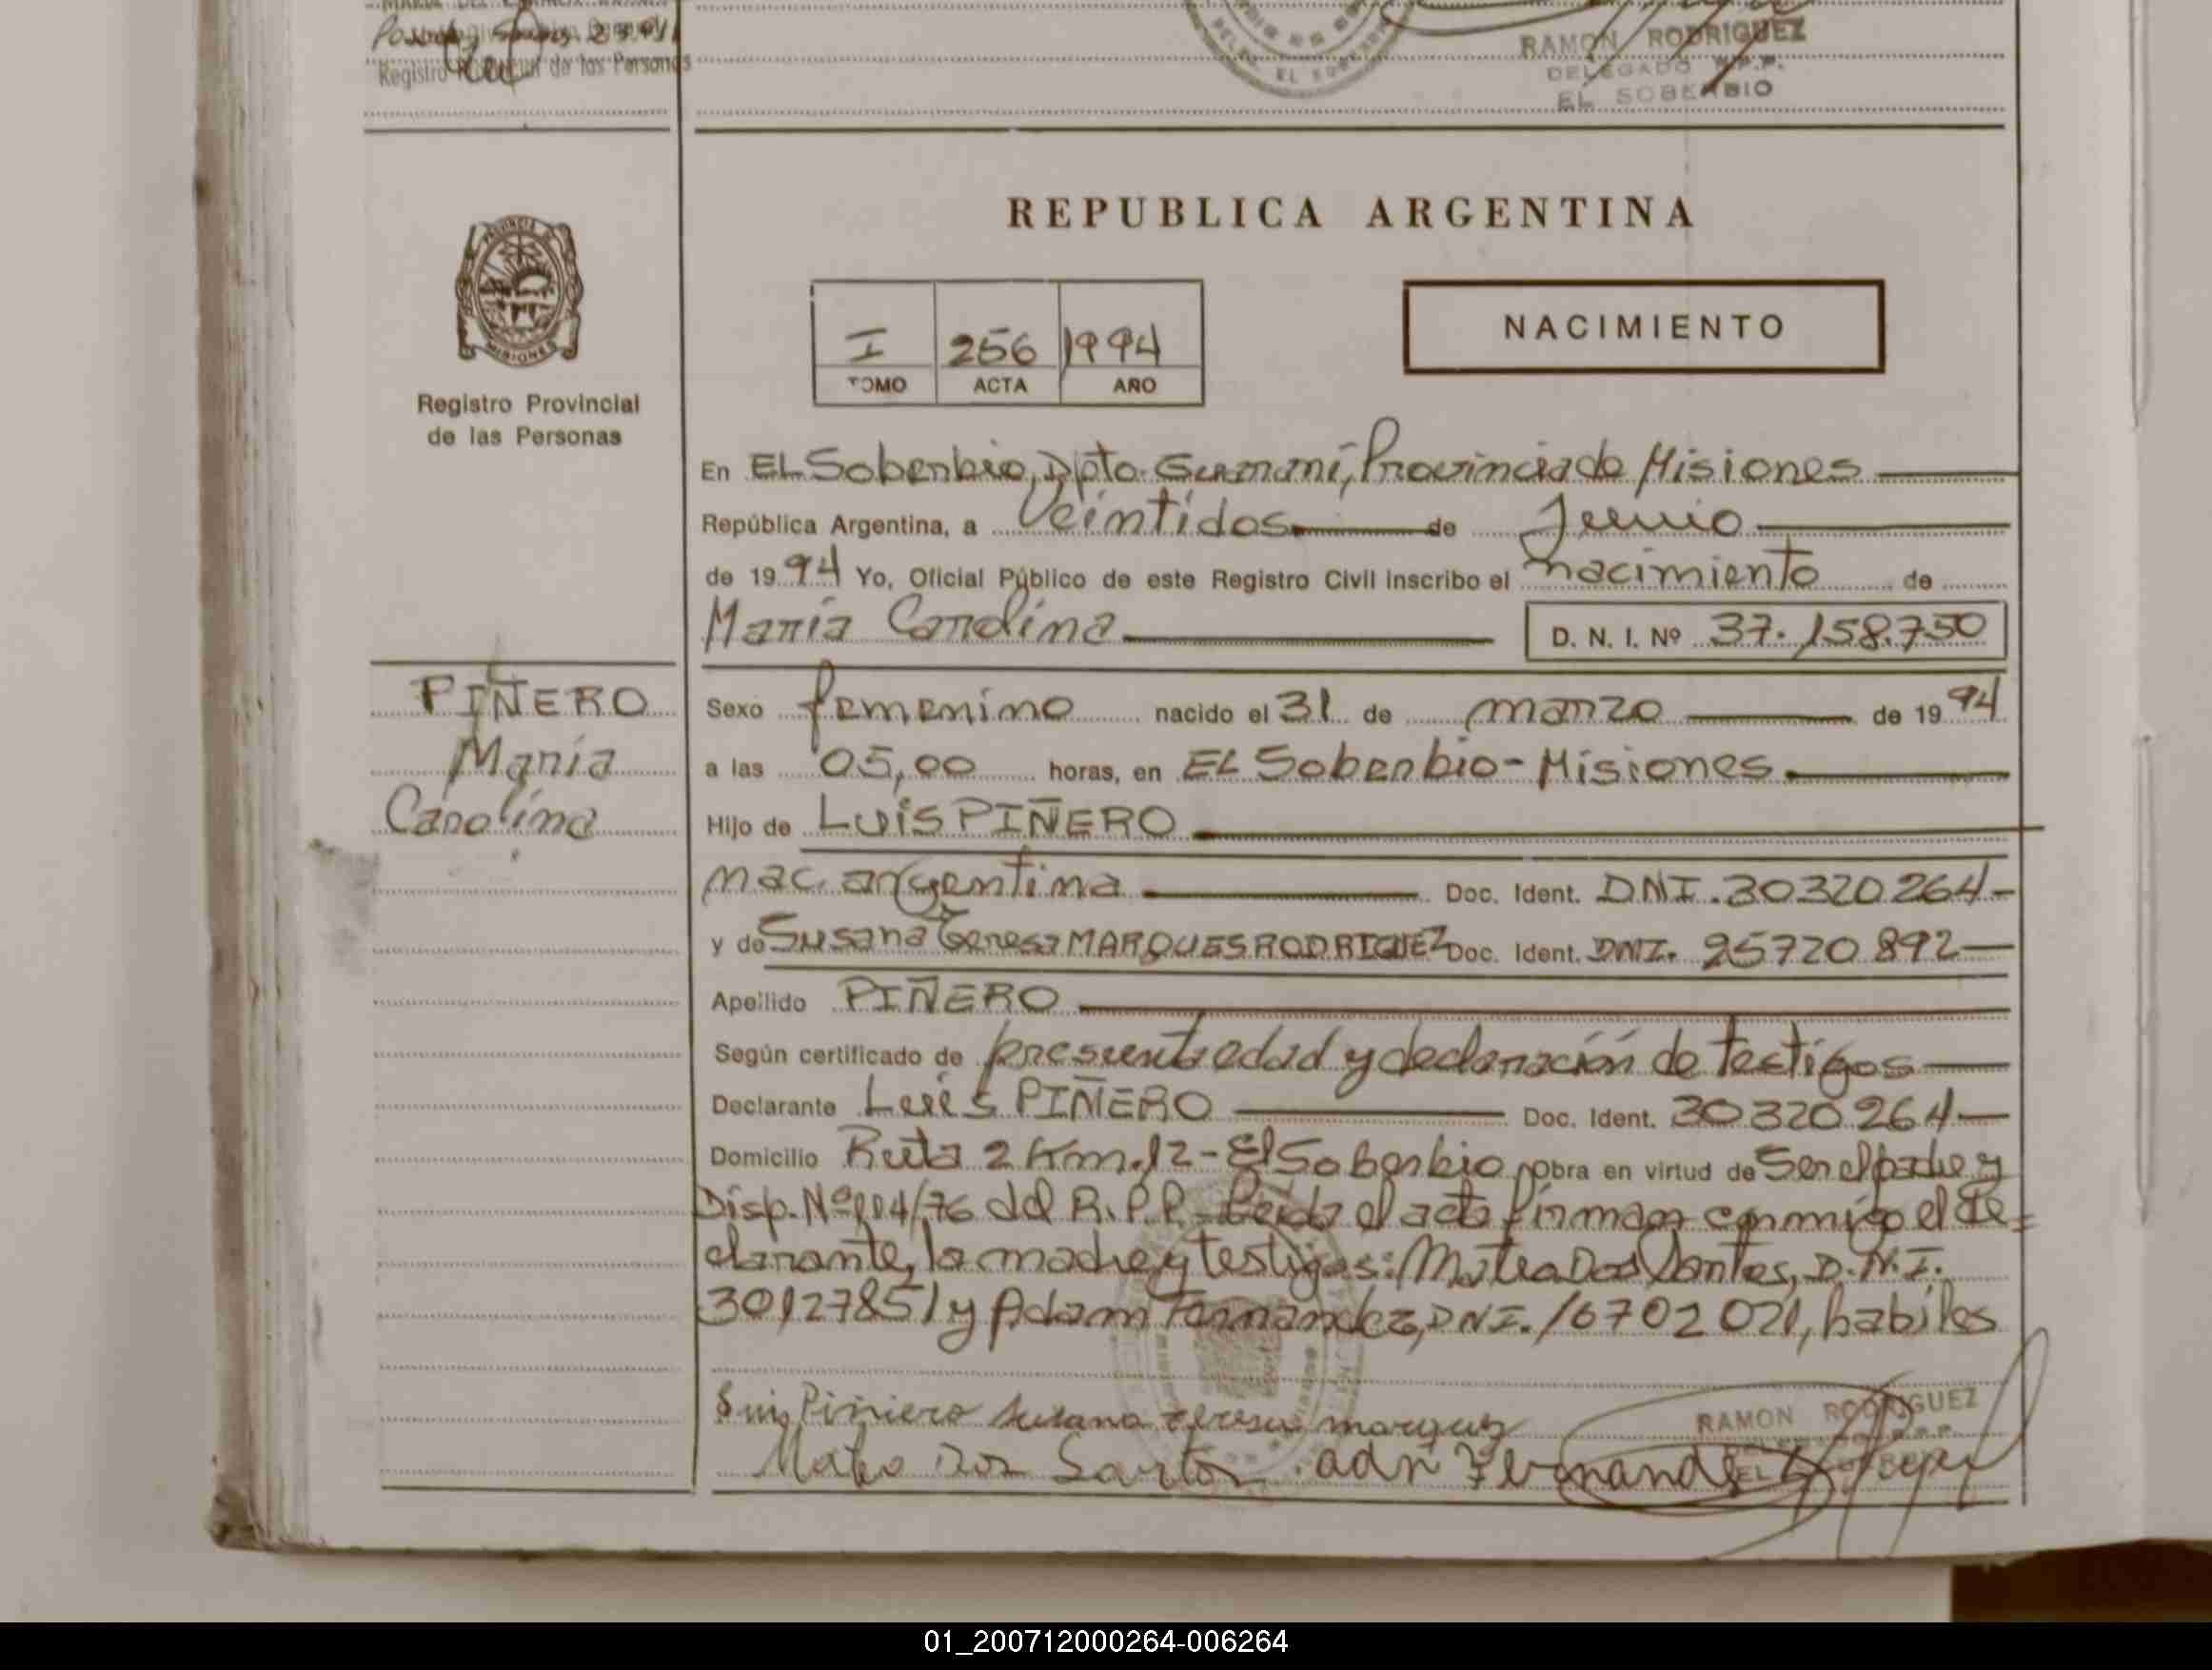 Registro Provincial de las Personas
RAMON RODRIGUEZ
DELEGADO R.P.P.
EL SOBERBIO
REPUBLICA ARGENTINA
PROVINCIA DE
MISIONES
Registro Provincial
de las Personas
I 256 1994
TOMO ACTA AÑO
NACIMIENTO
En EL Soberbio, Dpto. Guaraní, Provincia de Misiones
República Argentina, a Veintidos de Junio
de 1994 Yo, Oficial Público de este Registro Civil inscribo el nacimiento de
María Carolina D. N. I. Nº 37.158.750
PIÑERO
María
Carolina
Sexo femenino nacido el 31 de marzo de 1994
a las 05,00 horas, en EL Soberbio - Misiones.
Hijo de LUIS PIÑERO
nac. argentina Doc. Ident. DNI. 30320264-
y de Susana Teresa MARQUES RODRIGUEZ Doc. Ident. DNI. 95720892-
Apellido PIÑERO
Según certificado de presunta edad y declaración de testigos
Declarante Luis PIÑERO Doc. Ident. 30320264-
Domicilio Ruta 2 Km.12 - El Soberbio obra en virtud de Ser el padre y
Disp. Nº 004/76 del R.P.P. - Leida el acta firman conmigo el de=
clarante, la madre y testigos: Mateo Dos Santos, D.N.I.
30127851 y Adam Fernandez, DNI. 16702021, habiles
Luis Piñiero Susana teresa marquez
RAMON RODRIGUEZ
Mateo Dos Santos adn Fernandez
01_200712000264-006264